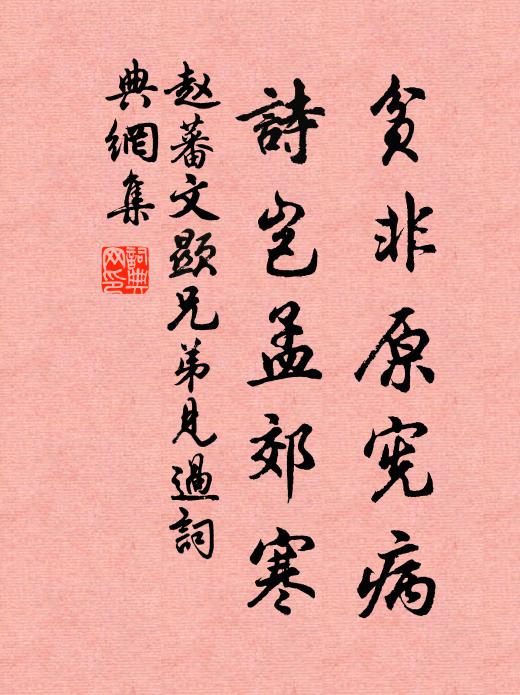 貧非原宪病
詩岂孟郊寒
赵蕃文顕兄弟見過詞
典網集
詞典
网印